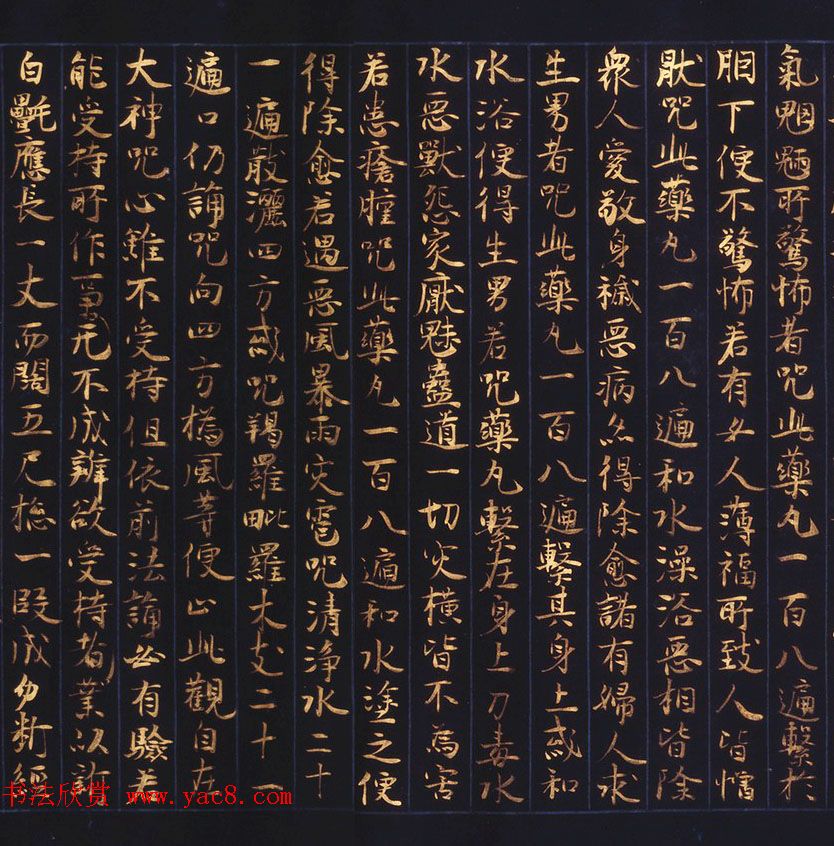 氣魍魎所驚怖者咒此藥丸一百八遍繫於
胭下便不驚怖若有女人薄福所致人皆憎
猒咒此藥丸一百八遍和水澡浴惡相皆除
衆人愛敬身穢惡病亦得除愈諸有婦人求
生男者咒此藥丸一百八遍繫其身上或和
水浴便得生男若咒藥丸繫在身上刀毒水
水惡獸怨家厭魅蠱道一切灾橫皆不為害
若患瘡腫咒此藥丸一百八遍和水塗之便
得除愈若遇惡風暴雨灾雹咒清淨水二十
一遍散灑四方或咒羯羅毗羅木支二十一
遍口仍誦咒向四方風等便止此觀自在
大神咒心雖不受持但依前法誦必有驗若
能受持所作事无不成辦欲受持者業以
白㲲應長一丈而闊五尺揔一段成勿斷經
书法欣赏 www.yac8.com